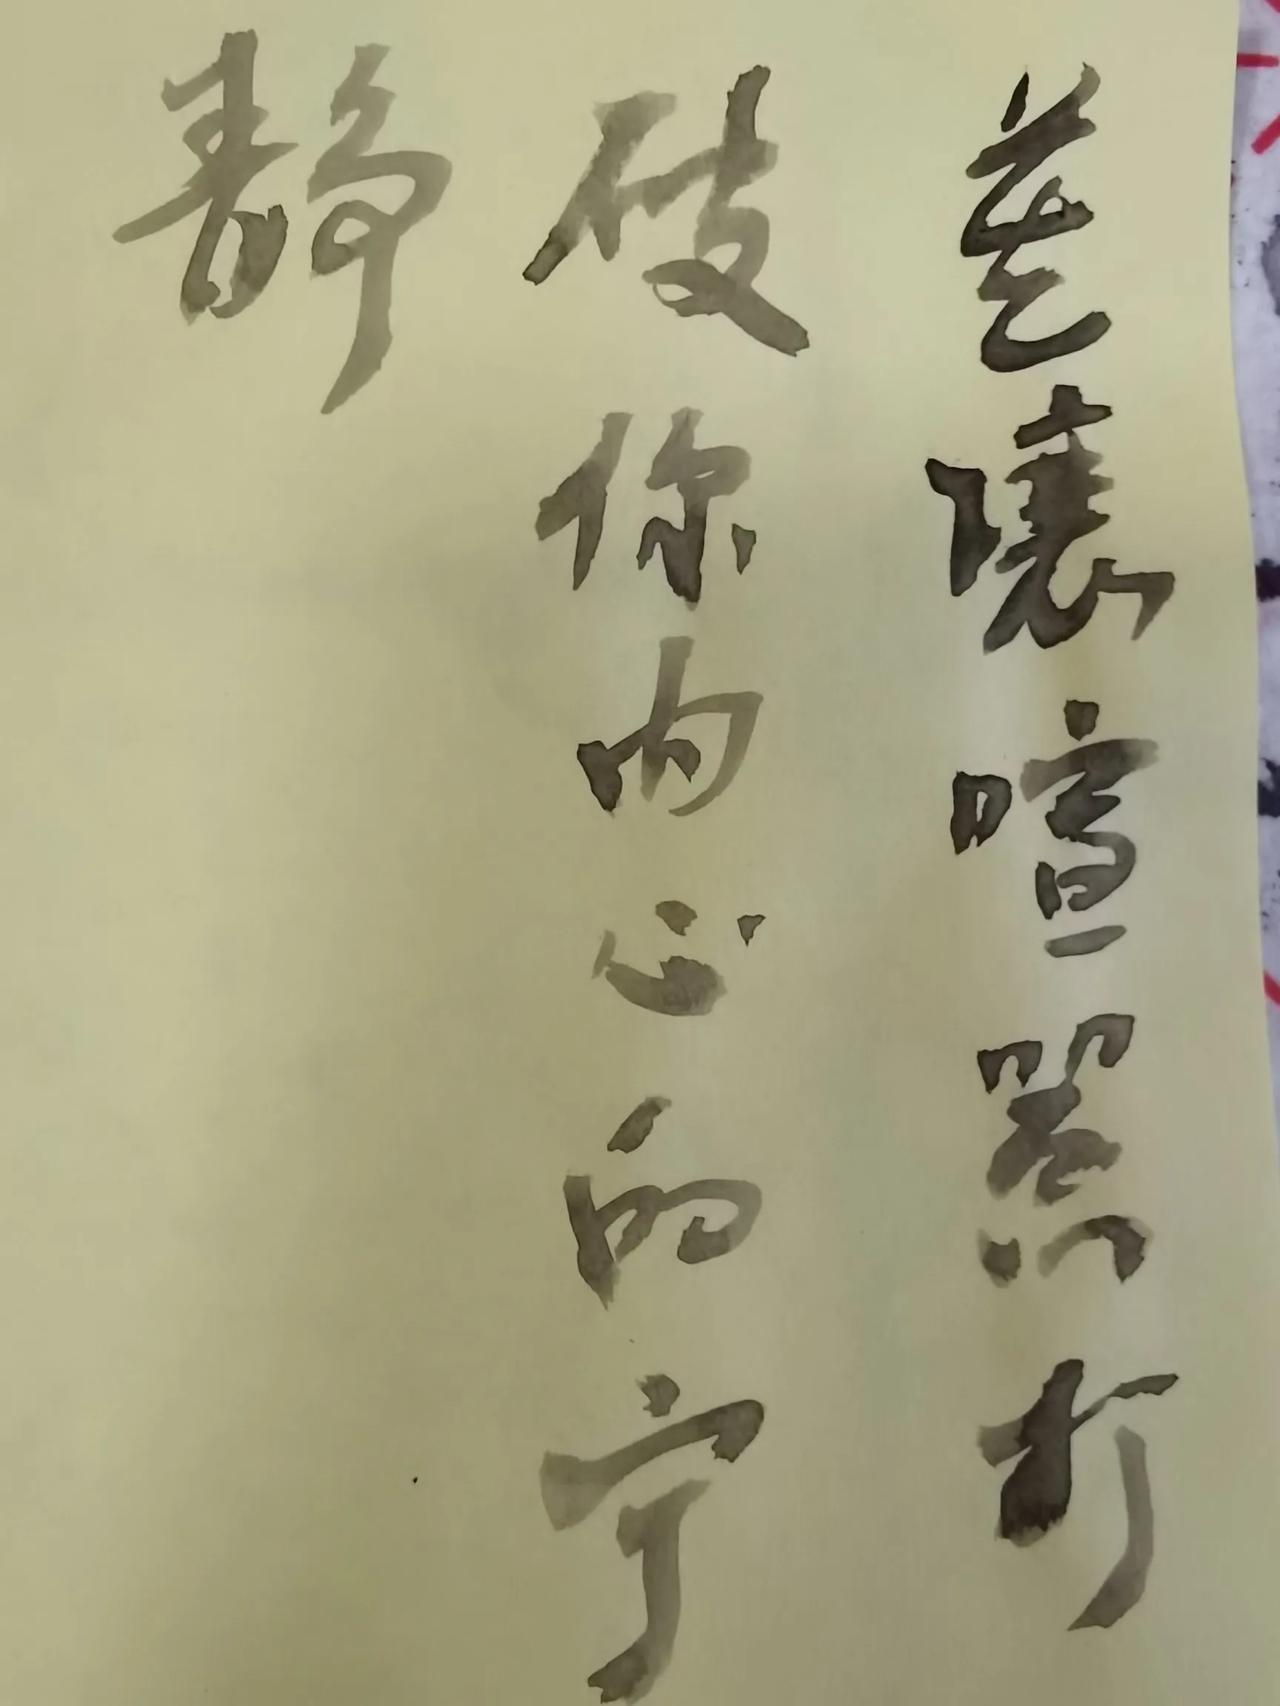 莫讓喧嚣打
破你内心的宁
静